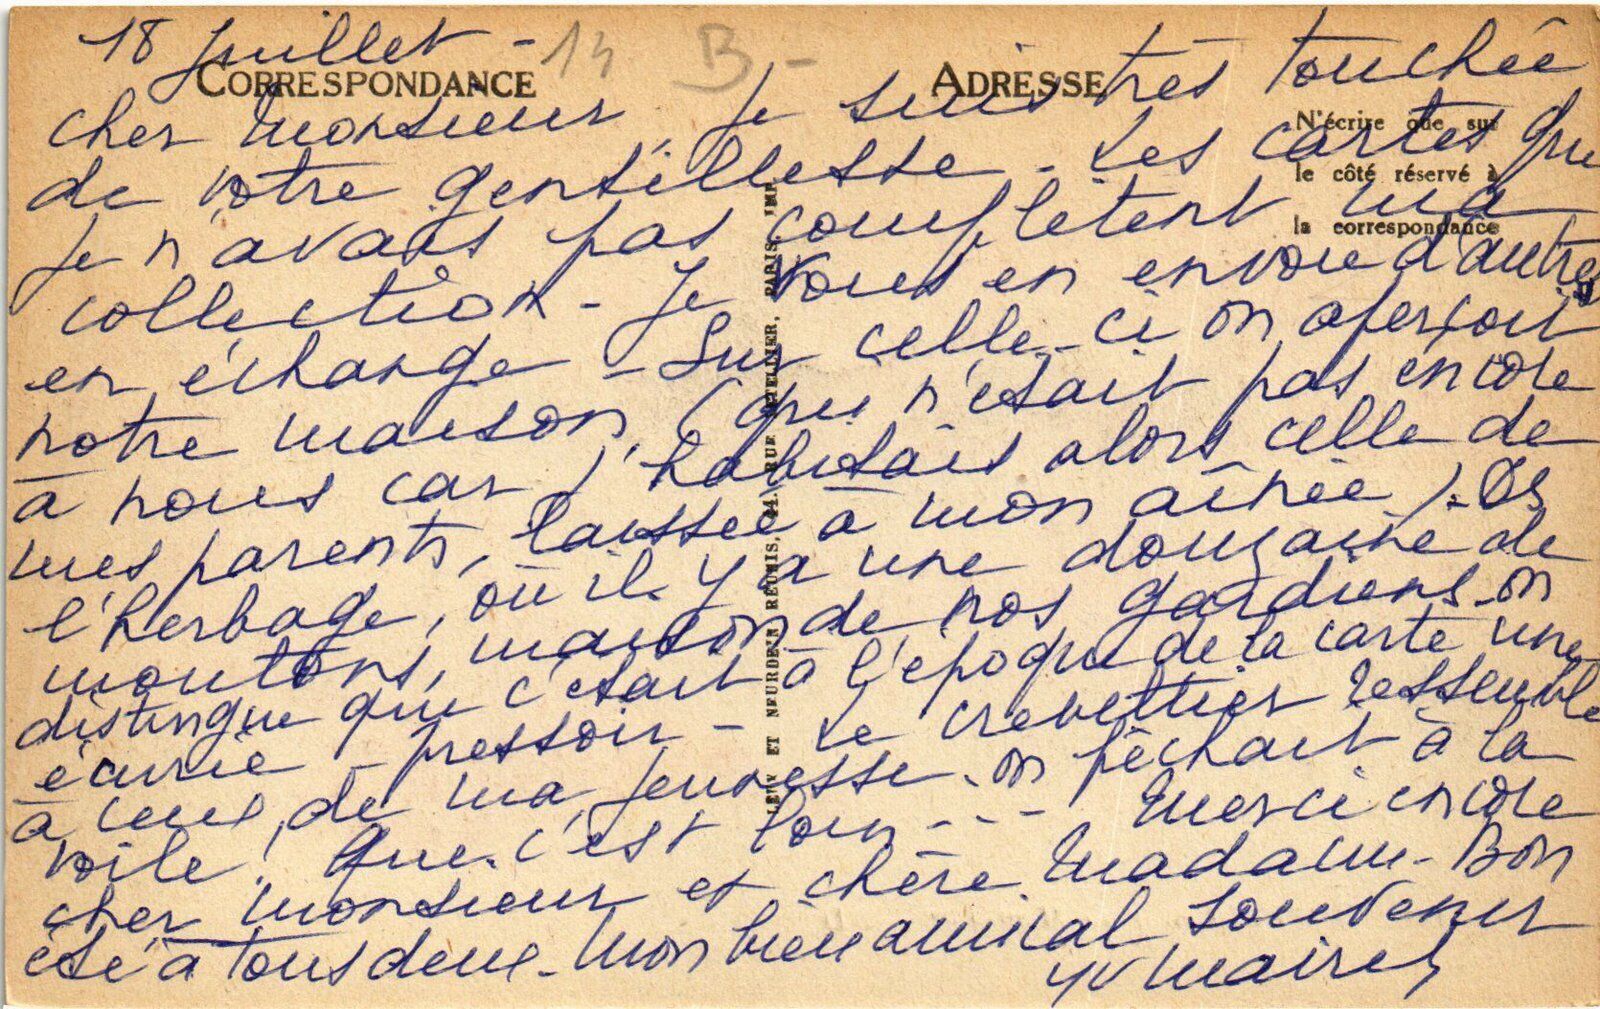 18 Juillet -
14 B-
CORRESPONDANCE
ADRESSE
N'écrire que sur
le côté réservé à
la correspondance
LEVY ET NEURDEIN RÉUNIS, 44, RUE LETELLIER, PARIS. IMP.
cher Monsieur, Je suis très touchée
de votre gentillesse - Les cartes que
je n'avais pas complètent ma
collection - Je vous en envoie d'autres
en échange - Sur celle-ci on aperçoit
notre maison, (qui n'était pas encore
à nous car j'habitais alors celle de
mes parents, laissée à mon aînée). De
l'herbage, où il y a une douzaine de
moutons, maison de nos gardiens - on
distingue que c'était à l'époque de la carte une
écurie - pressoir - Le crevettier ressemble
à ceux de ma jeunesse - on pêchait à la
voile! que c'est loin - - - Merci encore
cher monsieur et chère Madame - Bon
été à tous deux - Mon bien amical souvenir